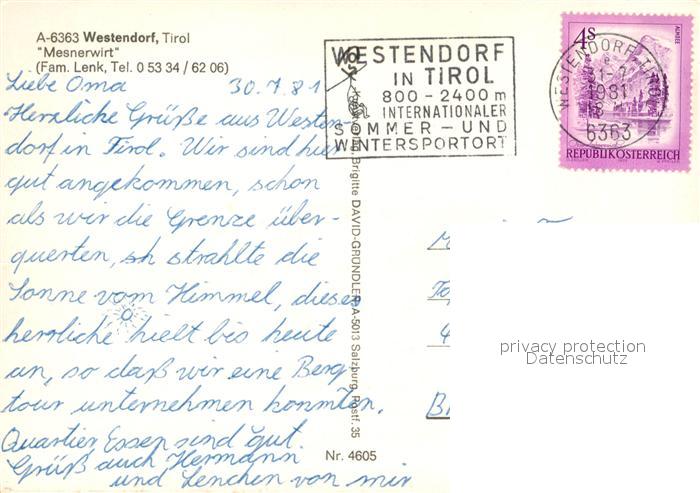 A-6363 Westendorf, Tirol
"Mesnerwirt"
(Fam. Lenk, Tel. 0 53 34 / 62 06)
Liebe Oma 30.7.81
Herzliche Grüße aus Westen-
dorf in Tirol. Wir sind hier
gut angekommen, schon
als wir die Grenze über-
querten, strahlte die
Sonne vom Himmel, dieses
herrliche hielt bis heute
an, so daß wir eine Berg-
tour unternehmen konnten.
Quartier, Essen sind gut.
Grüß auch Hermann
und Lenchen von mir
Brigitte DAVID-GRÜNDLER, A-5013 Salzburg, Postf. 35
Nr. 4605
WESTENDORF
IN TIROL
800 - 2400 m
INTERNATIONALER
SOMMER - UND
WINTERSPORTORT
WESTENDORF, TIROL
31.-7.
1981
6363
4S
ALMSEE
REPUBLIK ÖSTERREICH
privacy protection
Datenschutz